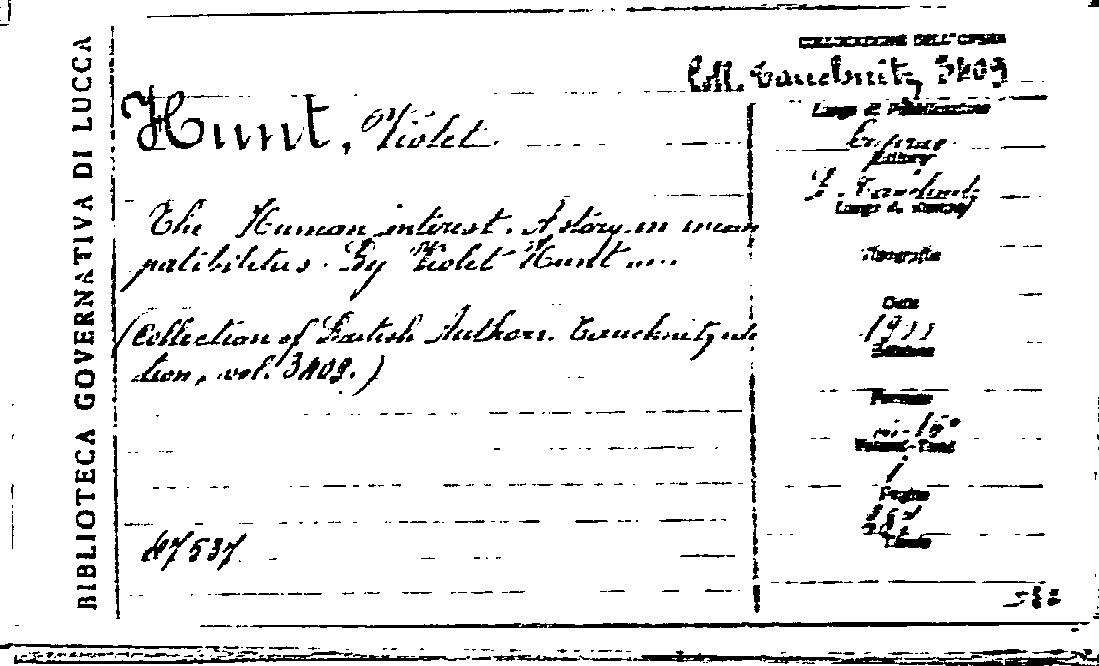 BIBLIOTECA GOVERNATIVA DI LUCCA
COLLOCAZIONE DELL'OPERA
Coll. Tauchnitz 3409
Hunt, Violet
Luogo di Pubblicazione
Editore
B. Tauchnitz
Luogo di stampa
The Human interest. A story in incom
patibilities. By Violet Hunt ....
Tipografia
Data
(Collection of British Authors. Tauchnitz edi
tion, vol. 3409.)
Edizione
Formato
in-16°
Volumi-Tomi
1
Pagine
Lire